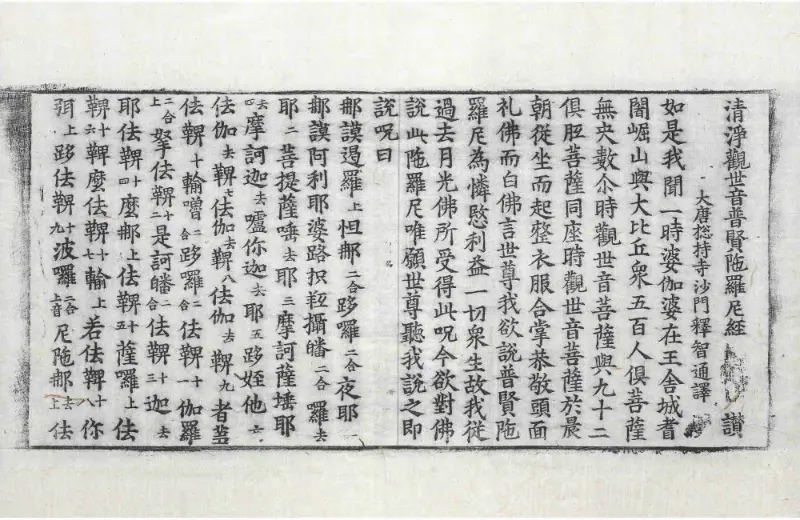 清淨觀世音普賢陁羅尼經 讃
大唐揔持寺沙門釋智通譯
如是我聞一時婆伽婆在王舍城耆
闍崛山與大比丘衆五百人俱菩薩
無央數尒時觀世音菩薩與九十二
俱胝菩薩同座時觀世音菩薩於晨
朝從坐而起整衣服合掌恭敬頭面
礼佛而白佛言世尊我欲說普賢陁
羅尼為憐愍利益一切衆生故我從
過去月光佛所受得此呪今欲對佛
說此陁羅尼唯願世尊聽我說之即
說呪曰
那謨遏羅上怛那二合跢羅二合夜耶一
那謨阿利耶婆路抧羝攝皤二合羅去
耶二菩提薩埵去耶三摩訶薩埵耶
去四摩訶迦去嚧你迦去耶五跢姪他六
佉伽去鞞七佉伽去鞞八佉伽去鞞九者
佉鞞十輸嚕二合跢羅二合佉鞞十一伽羅
二合上拏佉鞞十二是訶皤二合佉鞞十三迦去
耶佉鞞十四麼那上佉鞞十五薩囉上佉
鞞十六鞞麼佉鞞十七輸上若佉鞞十八你
弭上跢佉鞞十九波囉二合上音尼陁那去上佉